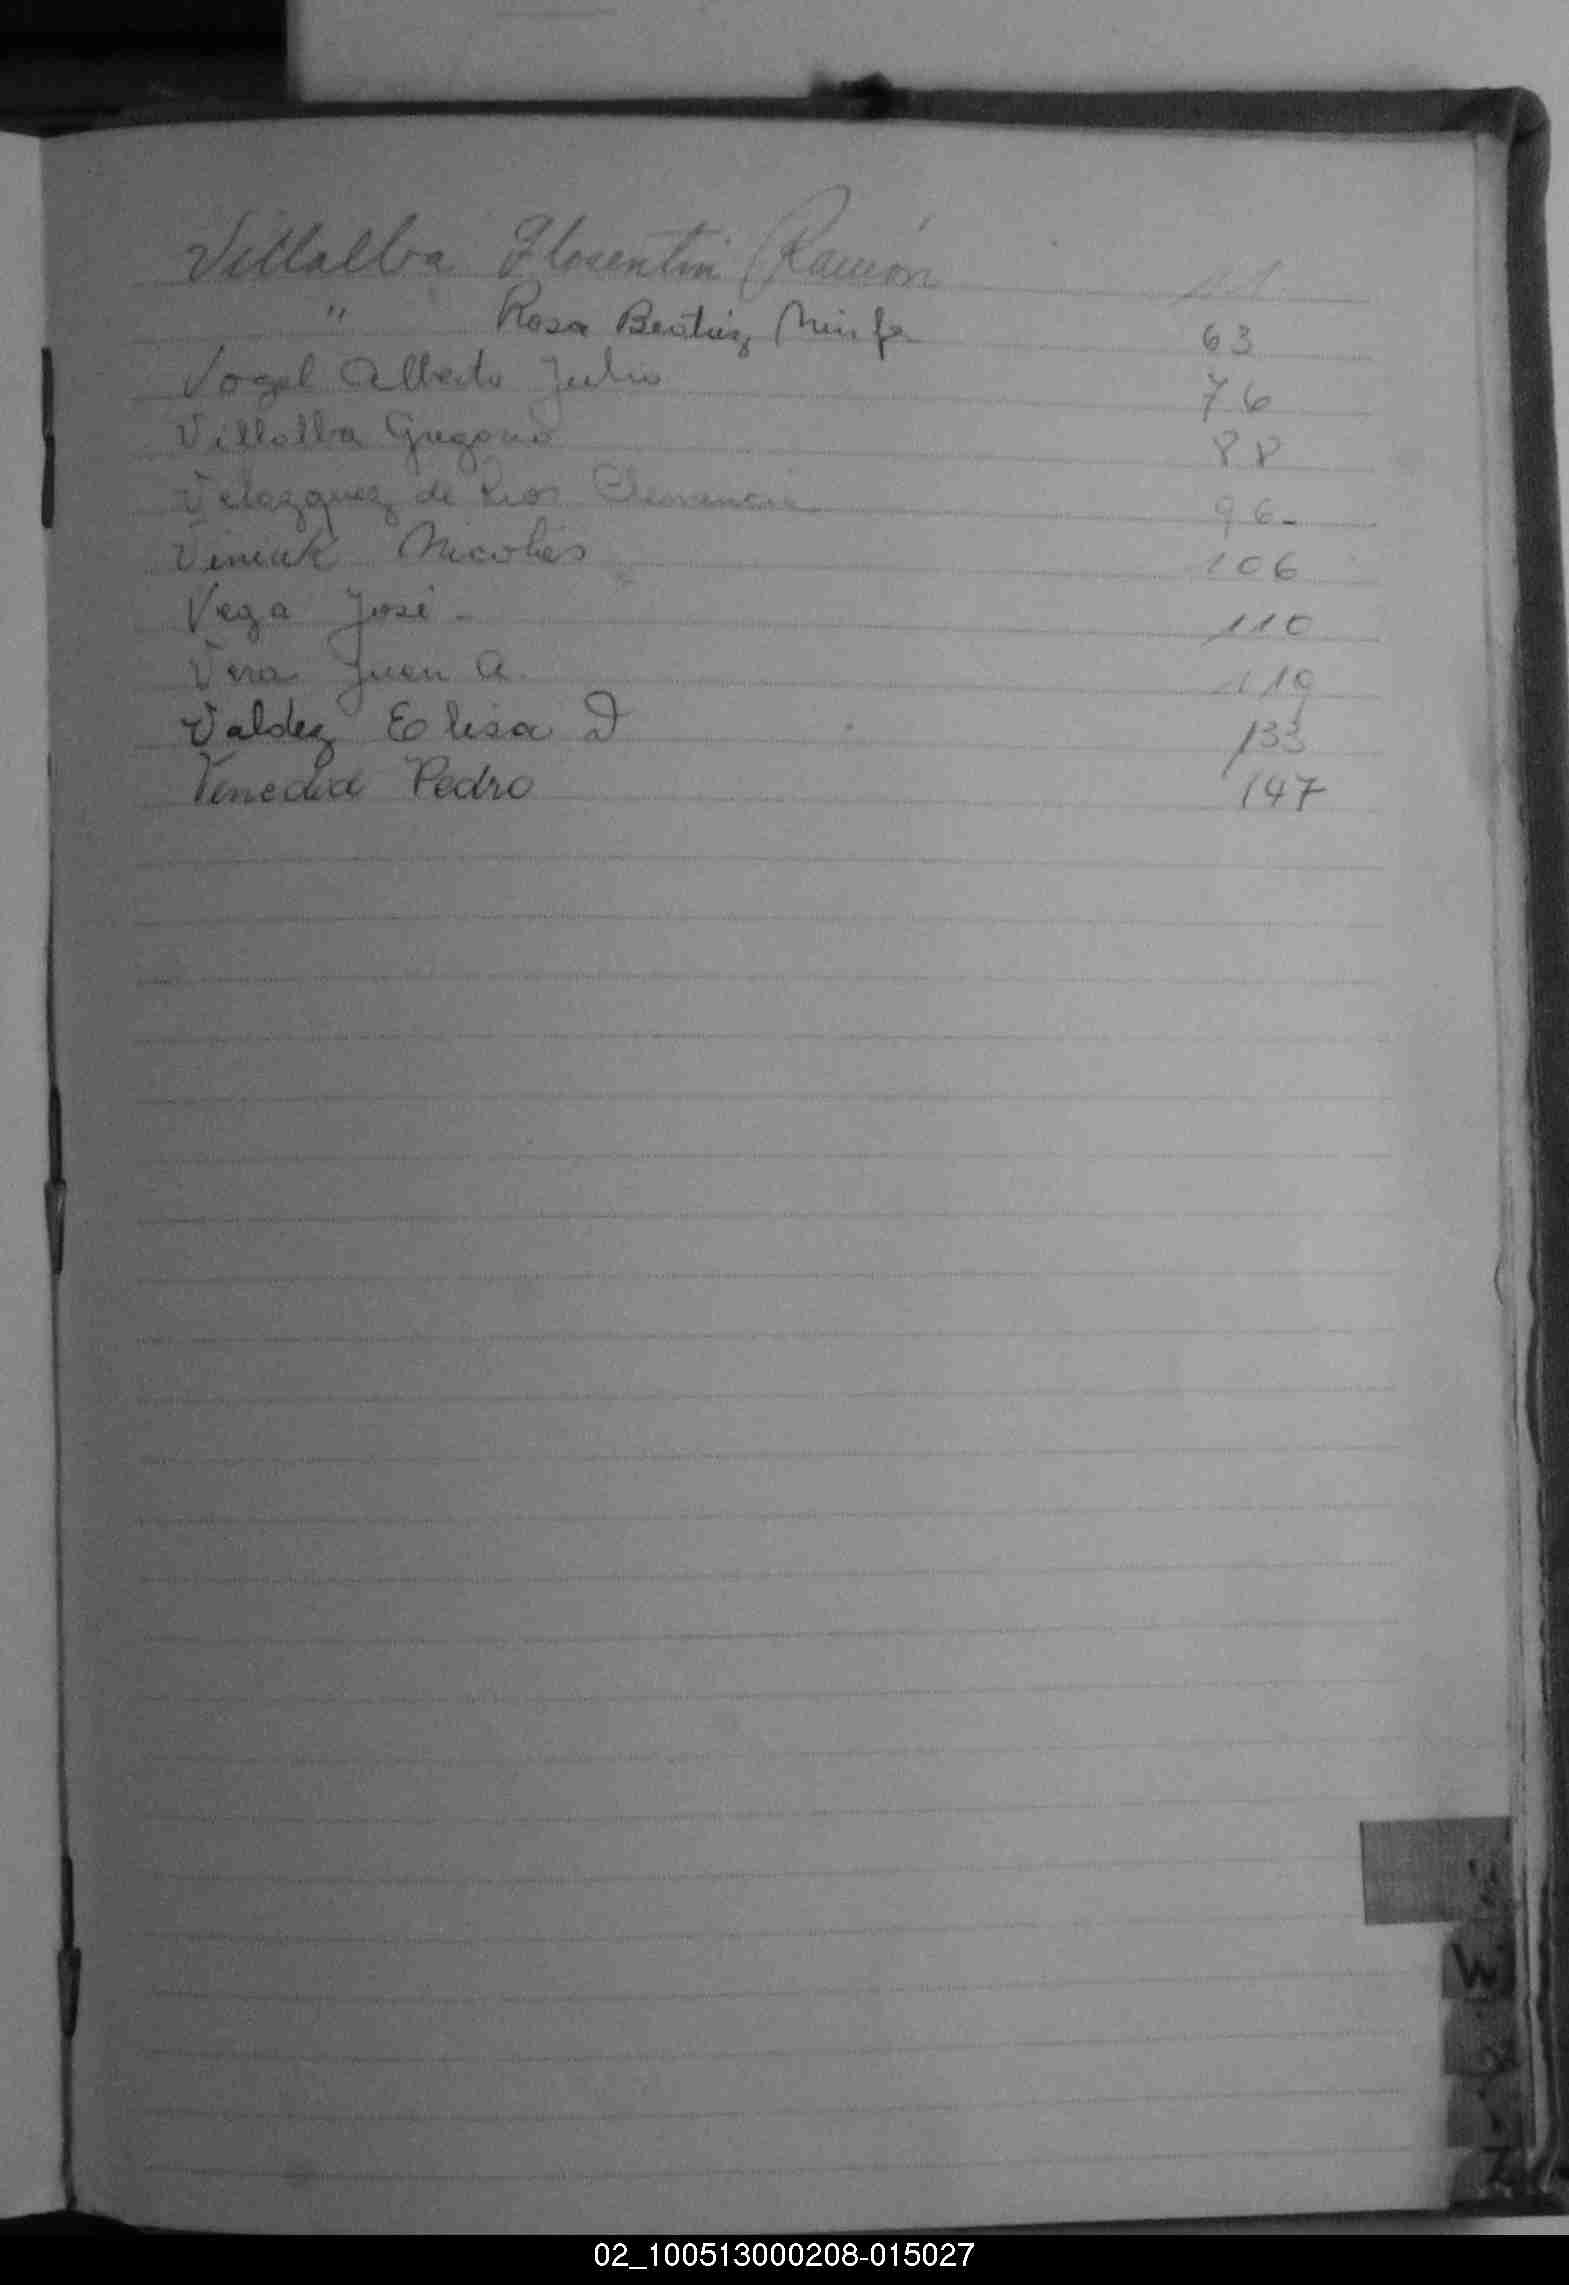 Villalba Florentin Ramón 11
" Rosa Beatriz Ninfa 63
Vogel Alberto Julio 76
Villalba Gregorio 88
Velazquez de Rios Clemencia 96-
Nicolás 106
Vega José - 110
Vera Juan A. 119
Valdez Elisa D 133
Pedro 147
W
Z
02_100513000208-015027